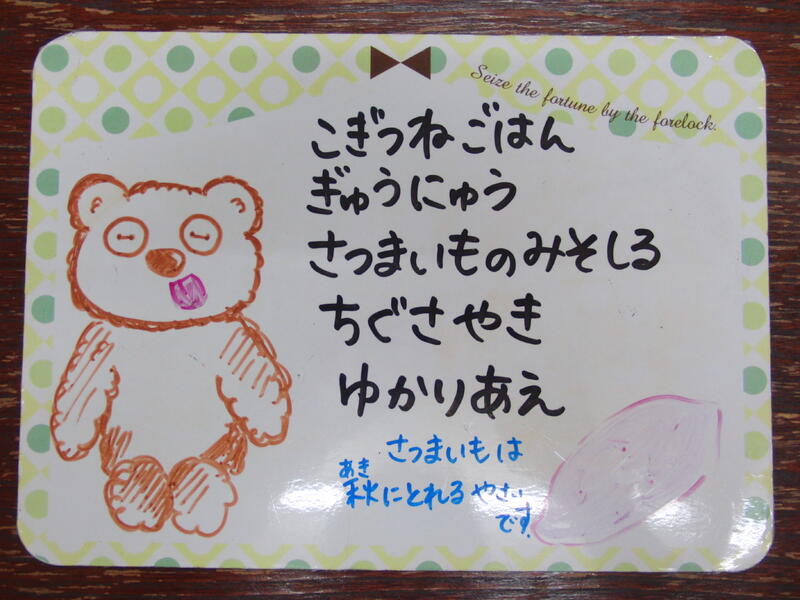 Seize the fortune by the forelock.
こぎつねごはん
ぎゅうにゅう
さつまいものみそしる
ちぐさやき
ゆかりあえ
さつまいもは
あき
秋にとれるやさい
です.